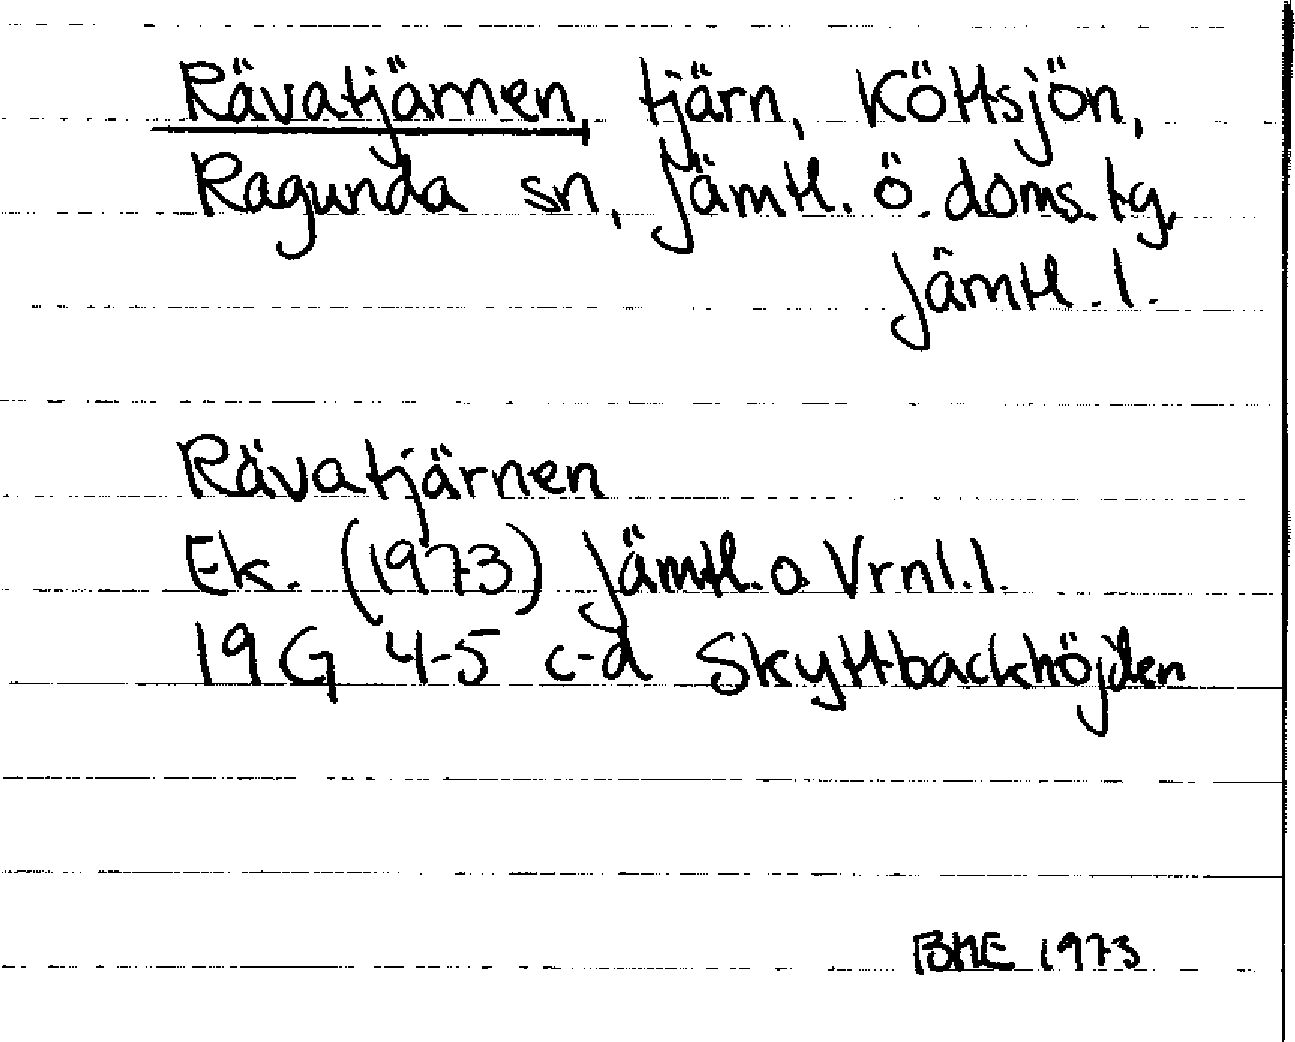 Rävatjärnen, tjärn, Köttsjön,
Ragunda sn, Jämtl. ö. doms. tg,
Jämtl. l.
Rävatjärnen
Ek. (1973) Jämtl. o Vrnl. l.
19 G 4-5 c-d Skyttbackhöjden
BME 1973